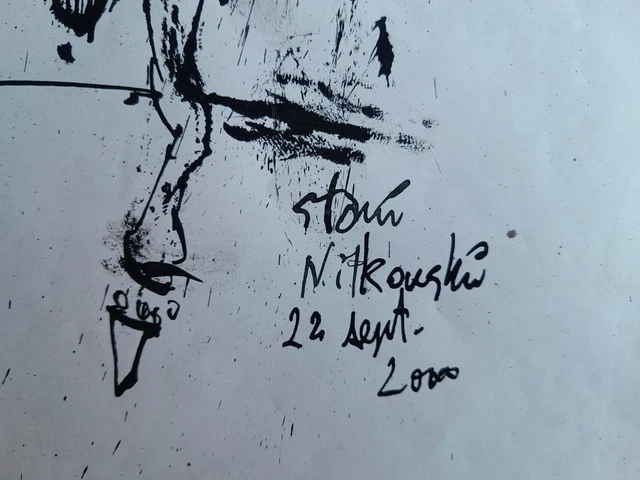 Stani
Nitkowski
22 sept.
2000